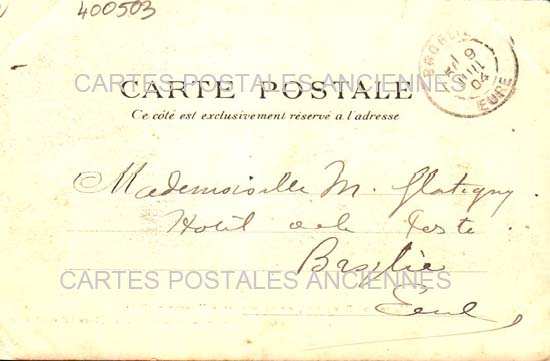 400503
BROGLIE
9 JUIL 04
EURE
CARTES POSTALES ANCIENNES
CARTE POSTALE
Ce côté est exclusivement réservé a l'adresse
Mademoiselle M. Glatigny
Hotel de la Poste
Broglie
CARTES POSTALES ANCIENNES
Eure